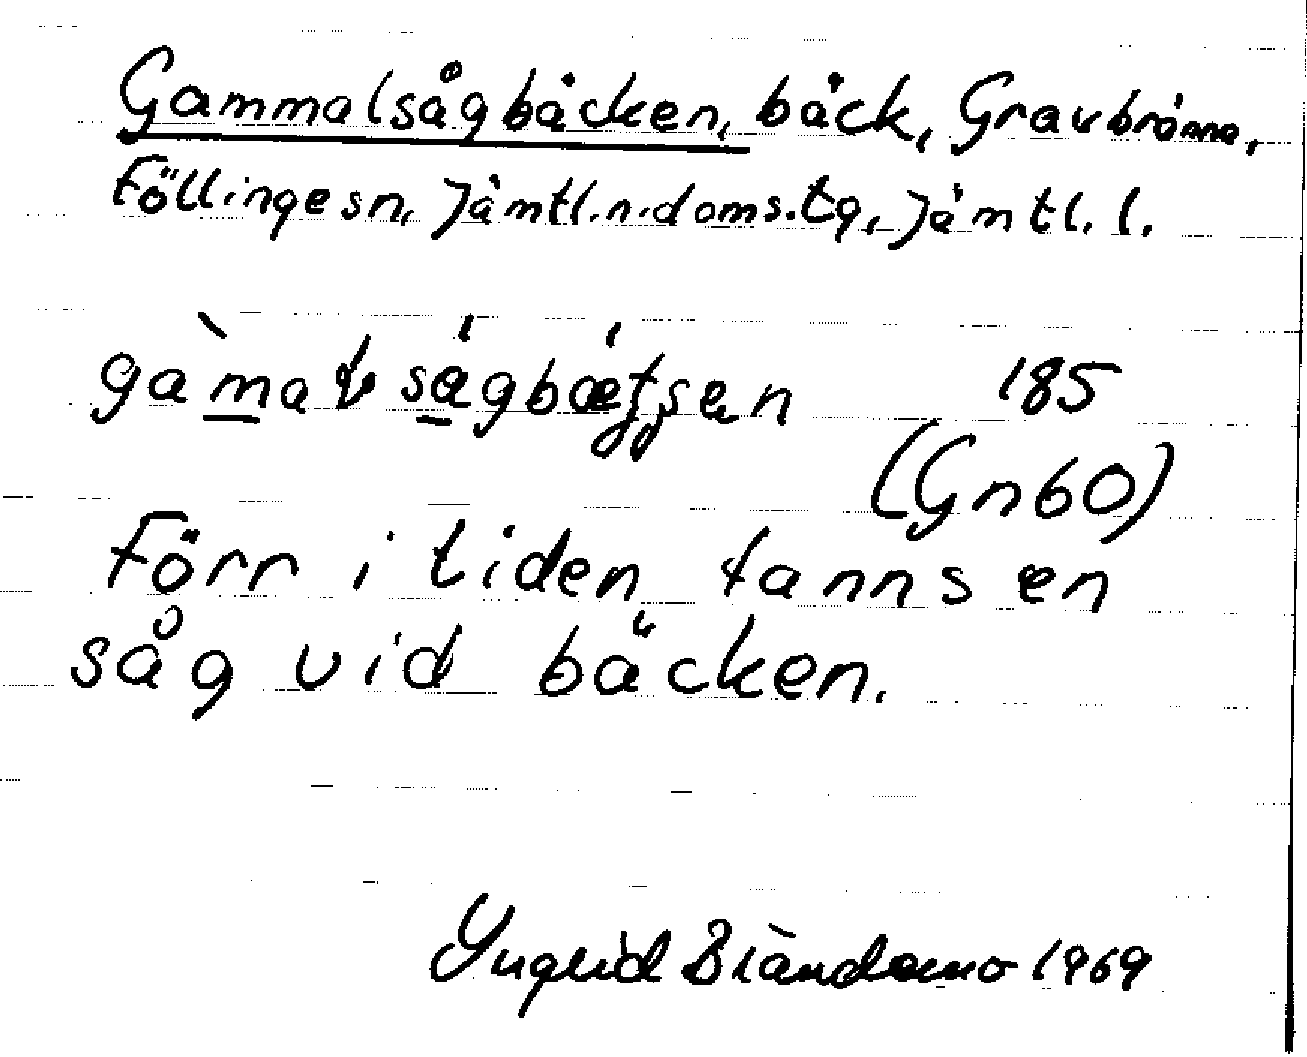 Gammalsågbäcken, bäck, Gravbränna,
Föllinge sn, Jämtl.n.doms.tg, Jämtl. l.
185
(Gn60)
Förr i tiden fanns en
såg vid bäcken.
Ingrid 1969